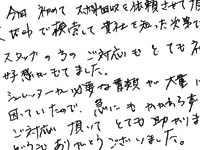 今回 初めて 不用品回収を依頼させて頂
ネット中で検索して貴社を知った次第で
スタッフの方のご対応もとても
好感がもてました。
シュレッダーが必要な書類が大量に
困っていたので、急にもかかわらず
ご対応頂いてとても助かりま
どうもありがとうございました。